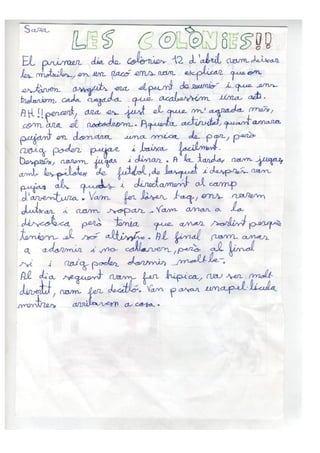 Sara
LES COLÒNIES!!
El primer dia de colònies 12 d'abril vam deixar
les motxiles, en en racó ens van explicar que on
estàvem asseguts era el punt de reunió i que ens
trobaríem cada vegada que acabéssim una act.
AH!! perdent, ara es just el que m'agrada més,
com ara el rocòdrom. Aquesta activitat, quant anava
pujant en donava una mica de por, però
vaig poder pujar i baixa facilment.
Després, varem jugar i dinar. A la tarda vam jugar
amb les pilotes de futbol, de basquet i després van
pujar als quads i directament al camp
d'aventura. Vam fer làser tag, ens varem
dutxar i vam sopar. Vam anar a la
discoteca però tenia que anar sortint perque
tenien el só altíssim. Al final vam anar
a adormir i no callaven, però al final
si i vaig poder dormir molt bé.
Al dia seguent vam fer hípica, va ser molt
divertit, vam fer decatló. Van posar una pel·lícula
mentres arribavem a casa.